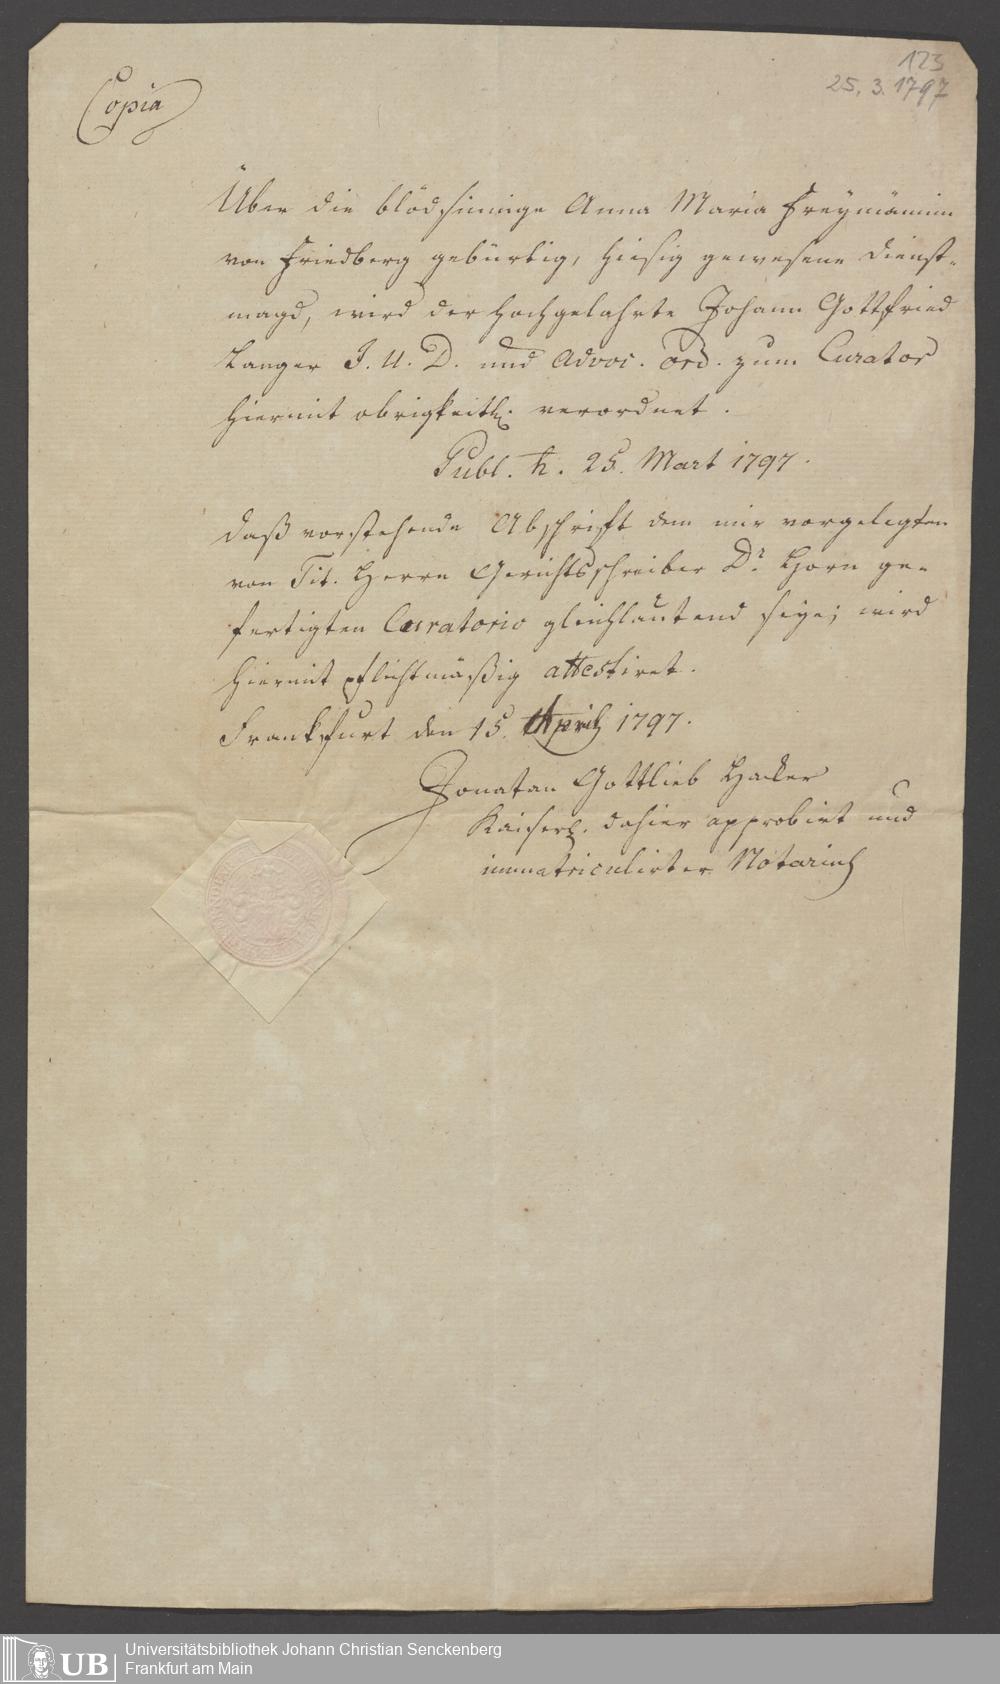 123
25. 3. 1797
Copia
Über die blödsinnige Anna Maria Freymännin
von Friedberg gebürtig, hiesig gewesene Dienst-
magd, wird der hochgelahrte Johann Gottfried
Langer J. U. D. und Advoc. ord. zum Curator
hiermit obrigkeitl. verordnet.
Publ. h. 25. Mart 1797.
Daß vorstehende Abschrift dem mir vorgelegten
von Tit. Herrn Gerichtsschreiber Dr. Horn ge-
fertigten Curatorio gleichlautend seye; wird
hiermit pflichtmäßig attestiret.
Frankfurt den 15. April 1797.
Jonatan Gottlieb Hacker
Kaiserl. dahier approbirt und
immatriculirter Notarius
UB
Universitätsbibliothek Johann Christian Senckenberg
Frankfurt am Main